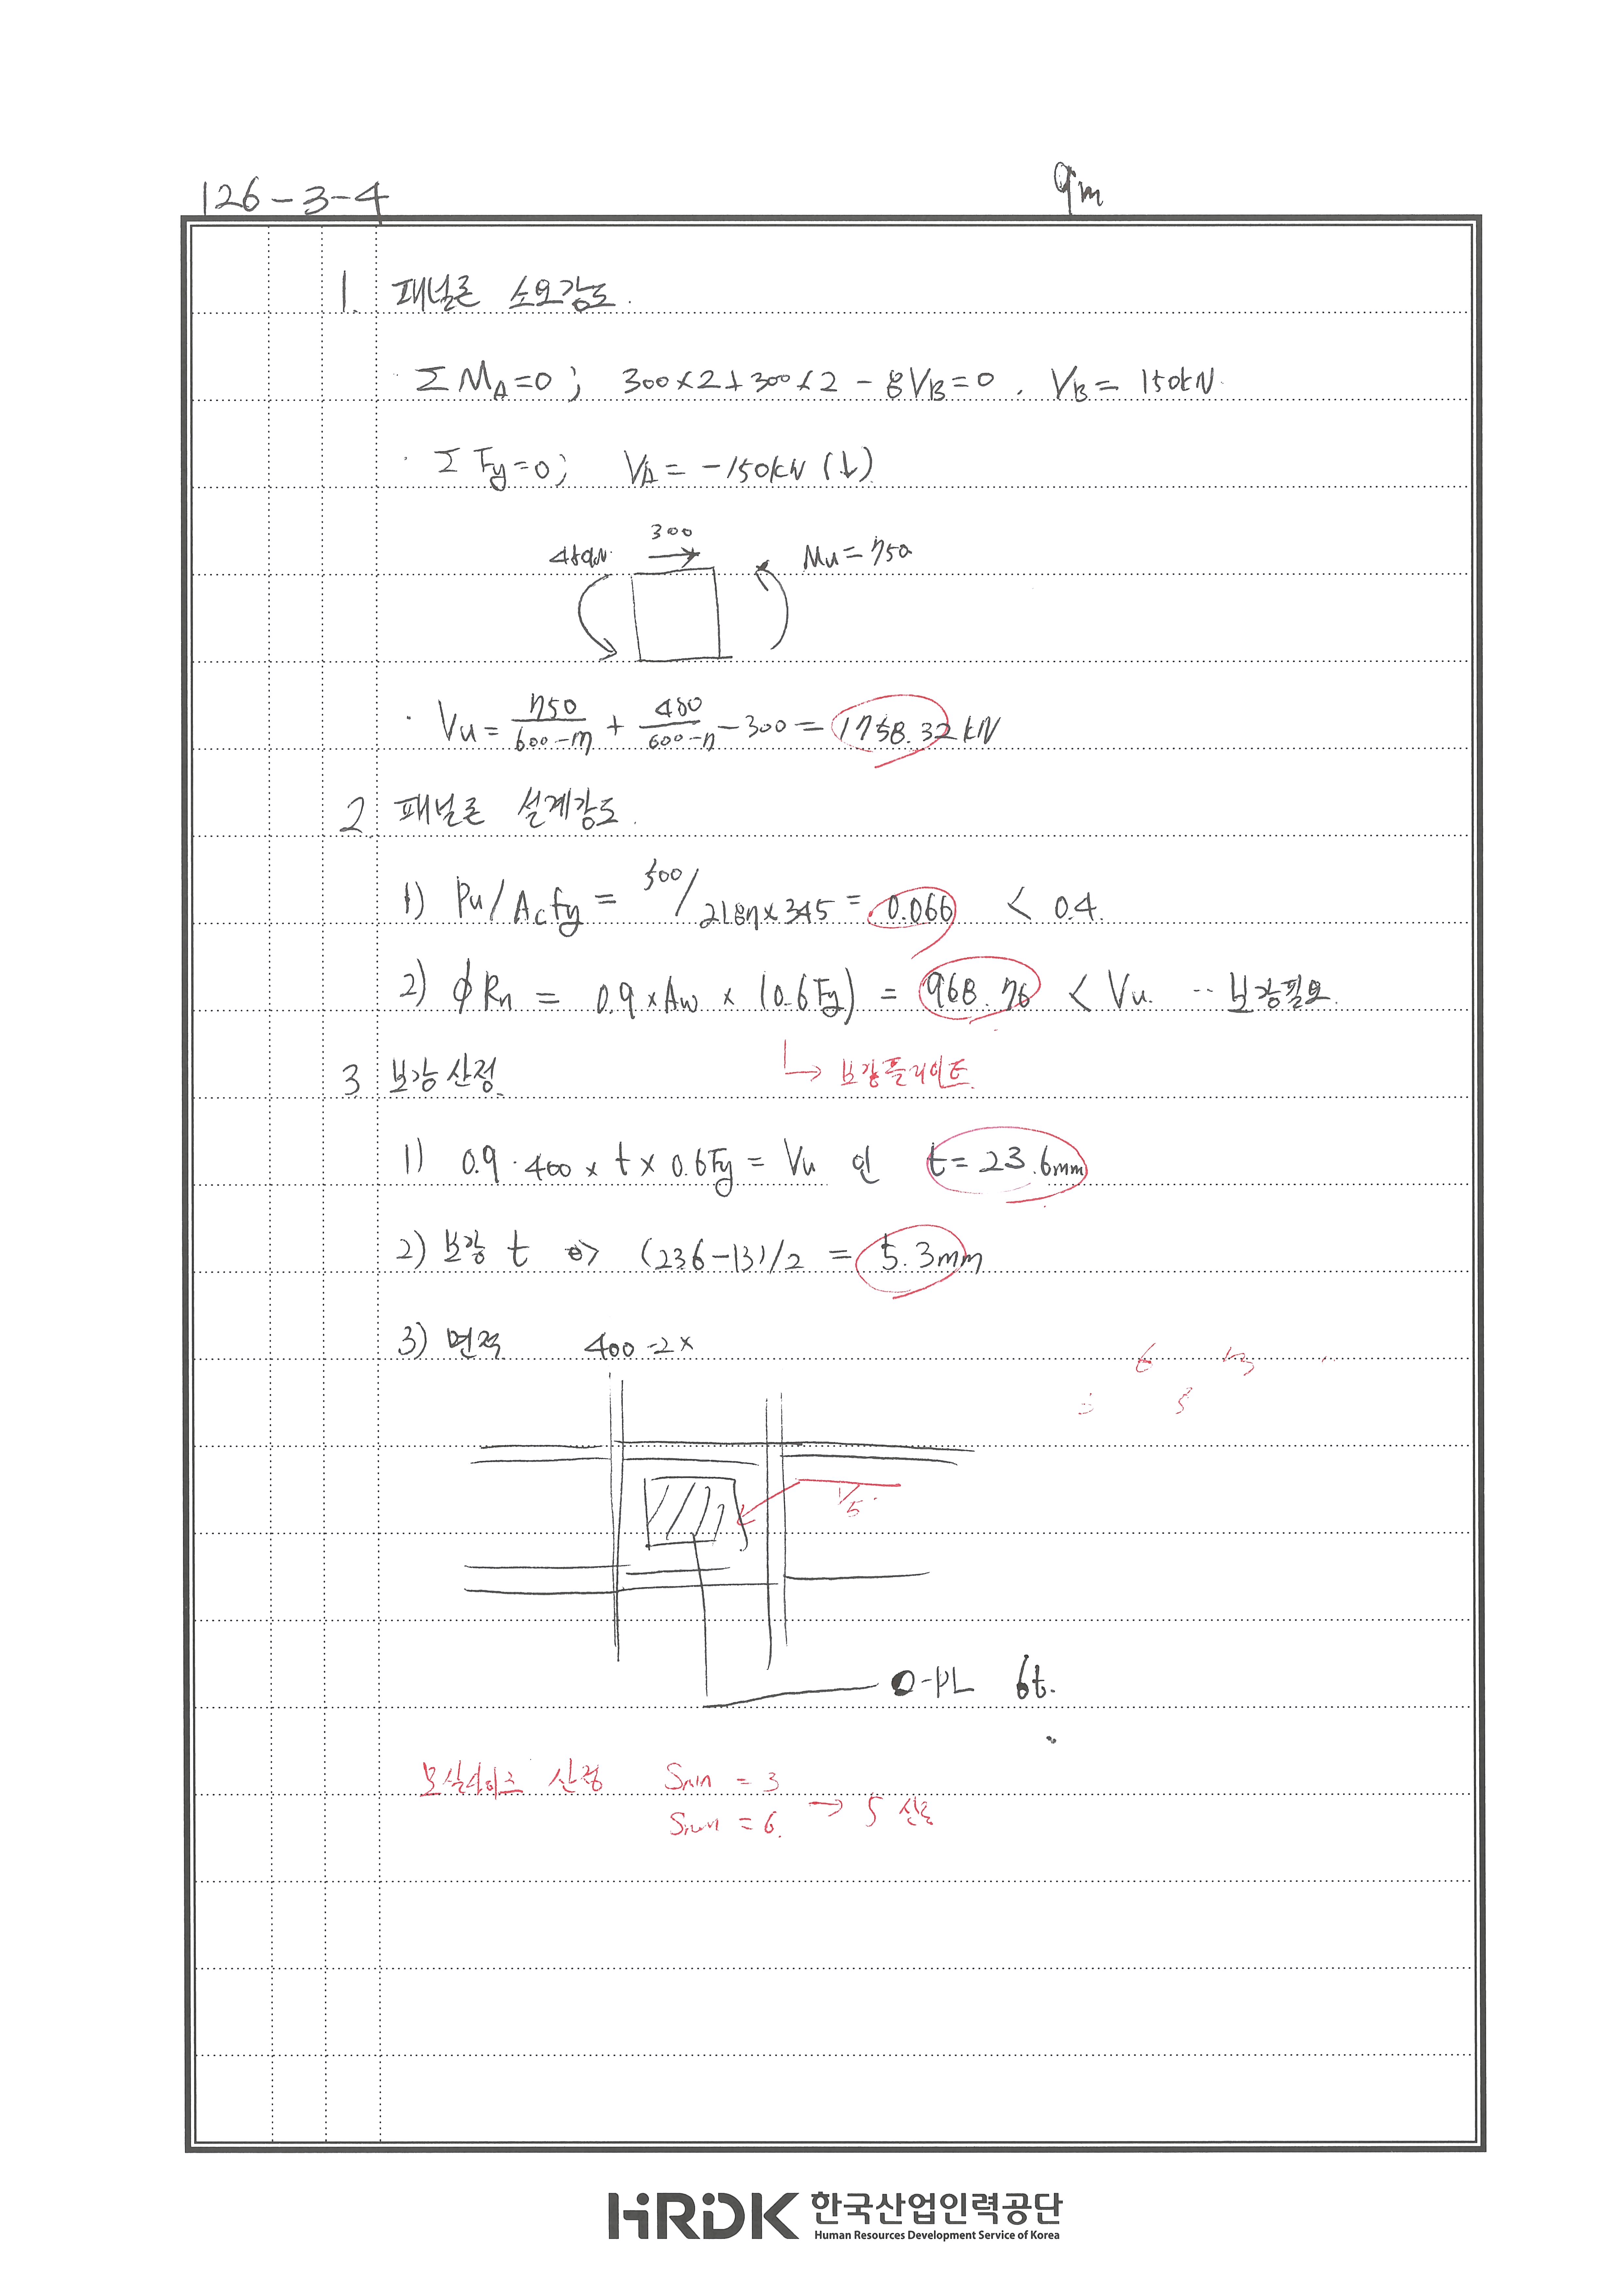 126-3-4
9m
1. 패널존 소요강도.
· ΣMA=0; 300×2+300×2-8VB=0. VB= 150kN.
· ΣFy=0; VA= -150kN (↓)
300
Mu=750
· Vu= 750/600-17 + 450/600-17 -300= 1758.32 kN
2. 패널존 설계강도.
1) Pu/AcFy = 500/2187×345 = 0.066 < 0.4.
2) ϕRn = 0.9×Aw×(0.6Fy) = 968.76 < Vu. ∴ 보강필요.
↳ 보강플레이트.
3 보강산정.
1) 0.9·400×t×0.6Fy = Vu 인 t=23.6mm
2) 보강 t ⇒ (236-13)/2 = 5.3mm
3) 면적 400-2×
5
D-PL 6t.
모살사이즈 산정 Smin = 3
Smin = 6. → 5 산정
HRDK 한국산업인력공단
Human Resources Development Service of Korea